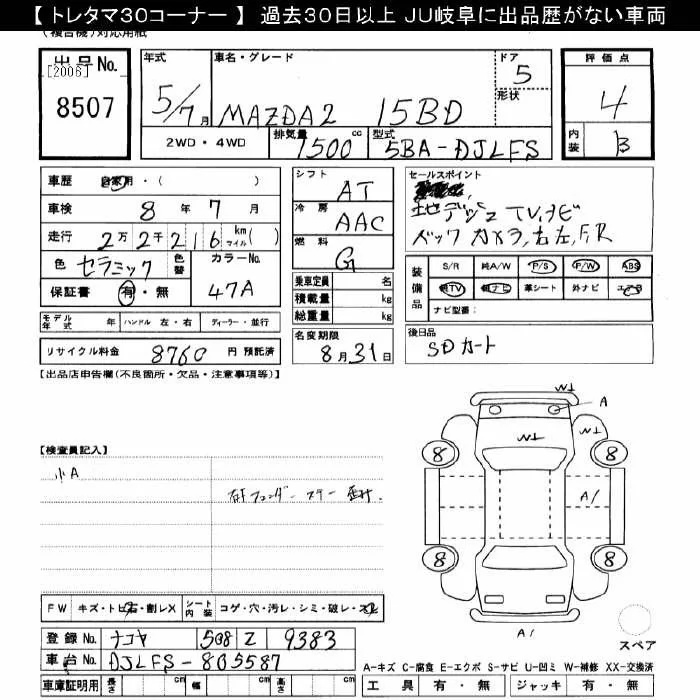 【 トレタマ30コーナー 】 過去30日以上 JU岐阜に出品歴がない車両
(複合機)対応用紙
出品No.
[2006]
8507
年式
5/7月
車名・グレード
MAZDA2 15BD
ドア
5
形状
2WD・4WD
排気量
1500 cc
型式
5BA-DJLFS
評価点
4
内装
B
車歴 自家用・( )
車検 8年 7月
走行 2万2千216 km マイル( )
色 セラミック 色替 カラーNo.
47A
保証書 有・無
モデル年式 年 ハンドル 左・右 ディーラー・並行
リサイクル料金 8760 円 預託済
シフト AT
冷房 AAC
燃料 G
乗車定員 名
積載量 kg
総重量 kg
名変期限
8月31日
セールスポイント
地デジTV,ナビ
バックカメラ,右左,F,R
装備品
S/R 純A/W P/S P/W ABS
純TV 純ナビ 革シート 外ナビ エアB
ナビ型番:
後日品
SDカート
【出品店申告欄(不良箇所・欠品・注意事項等)】
【検査員記入】
小A
WT
A
WT
WT
8
8
A1
8
8
A1
スペア
FW キズ・トビ石・割レX シート内装 コゲ・穴・汚レ・シミ・破レ・スレ
登録No. ナゴヤ 508 Z 9383
車台No. DJLFS-805587
車庫証明用 長さ cm 幅 cm 高さ cm
A-キズ C-腐食 E-エクボ S-サビ U-凹ミ W-補修 XX-交換済
工具 有・無 ジャッキ 有・無